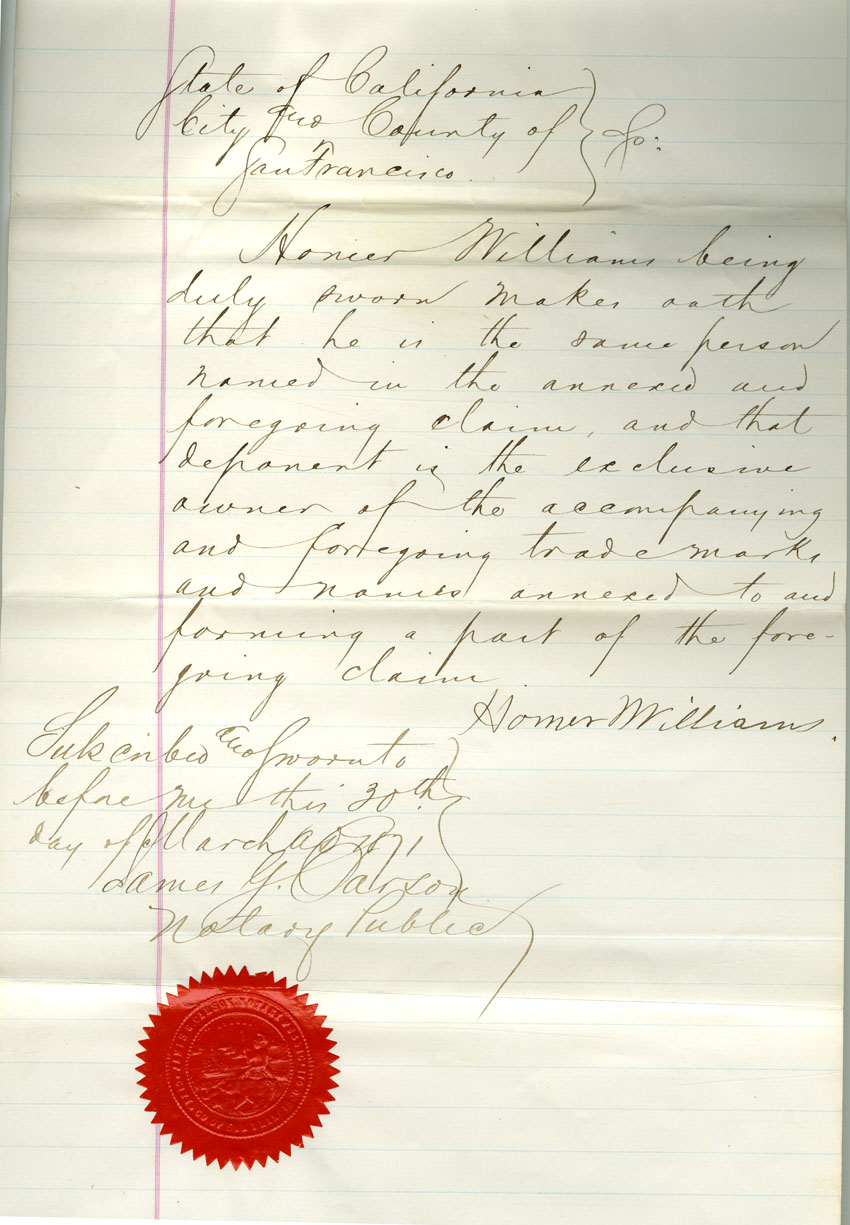 State of California
City and County of } Ss:
San Francisco.
Homer Williams being
duly sworn makes oath
that he is the same person
named in the annexed and
foregoing claim, and that
deponent is the exclusive
owner of the accompanying
and foregoing trade marks
and names annexed to and
forming a part of the fore-
going claim
Homer Williams.
Subscribed and Sworn to
before me this 30th
day of March AD 1871
James G. Carson
Notary Public